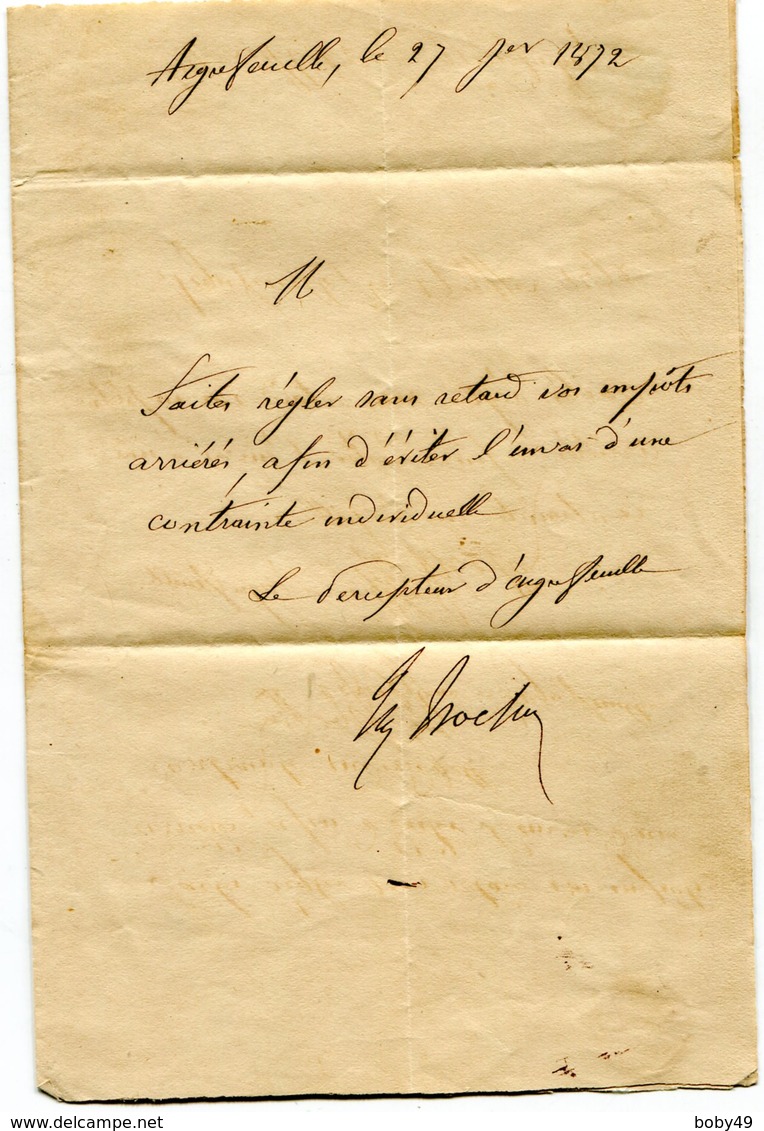 Aigrefeuille, le 27 Jer 1872
M
Faites régler sans retard vos impôts
arriérés, afin d'éviter l'envoi d'une
contrainte individuelle
Le Percepteur d'Aigrefeuille
www.delcampe.net
boby49